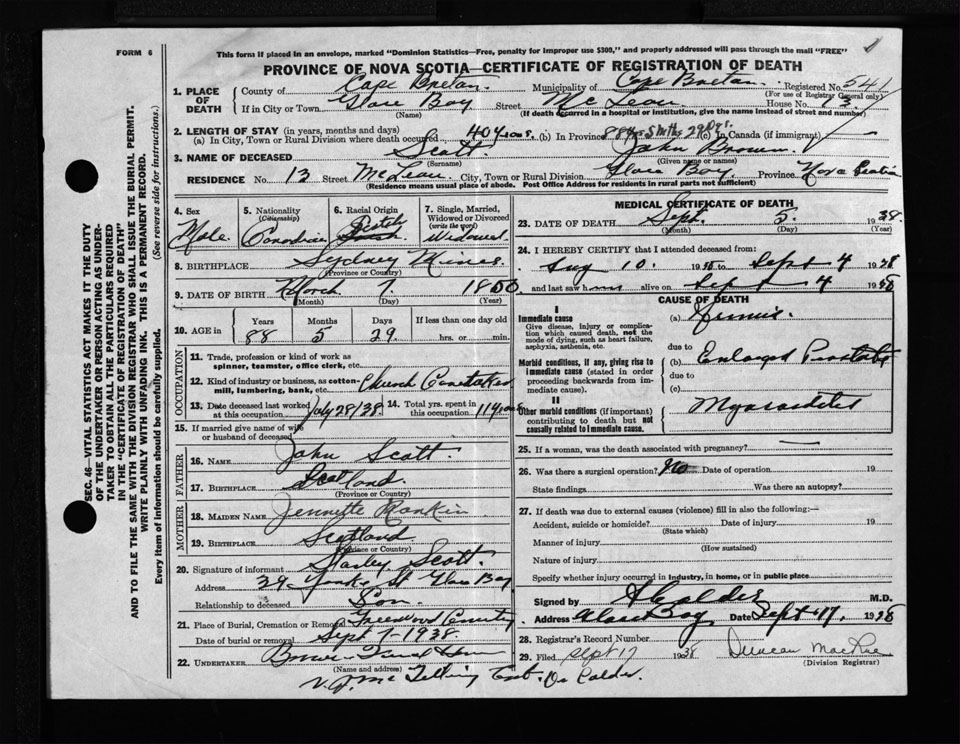 FORM 6
This form if placed in an envelope, marked "Dominion Statistics—Free, penalty for improper use $300," and properly addressed will pass through the mail "FREE"
PROVINCE OF NOVA SCOTIA—CERTIFICATE OF REGISTRATION OF DEATH
1. PLACE OF DEATH County of Cape Breton Municipality of Cape Breton Registered No.
(For use of Registrar General only)
If in City or Town Glace Bay Street McLean House No. 13
(Name) (If death occurred in a hospital or institution, give the name instead of street and number)
2. LENGTH OF STAY (in years, months and days)
(a) In City, Town or Rural Division where death occurred 40 years (b) In Province 88 yrs 5 mths 29 Dys. (c) In Canada (if immigrant)
3. NAME OF DECEASED Scott John Brown
(Surname) (Given name or names)
RESIDENCE No. 13 Street McLean City, Town or Rural Division Glace Bay Province Nova Scotia
(Residence means usual place of abode. Post Office Address for residents in rural parts not sufficient)
4. Sex Male
5. Nationality (Citizenship) Canadian
6. Racial Origin Scotch
7. Single, Married, Widowed or Divorced (write the word) Widowed
8. BIRTHPLACE Sydney Mines
(Province or Country)
9. DATE OF BIRTH March 7 1850
(Month) (Day) (Year)
10. AGE in Years Months Days If less than one day old
88 5 29 hrs. or min.
OCCUPATION
11. Trade, profession or kind of work as spinner, teamster, office clerk, etc.
12. Kind of industry or business, as cotton-mill, lumbering, bank, etc. Church Caretaker
13. Date deceased last worked at this occupation July 28/38 14. Total yrs. spent in this occupation 11 years
15. If married give name of wife or husband of deceased
FATHER
16. NAME John Scott
17. BIRTHPLACE Scotland
(Province or Country)
MOTHER
18. MAIDEN NAME Jennette Rankin
19. BIRTHPLACE Scotland
(Province or Country)
20. Signature of informant Stanley Scott
Address 29 York St Glace Bay
Relationship to deceased Son
21. Place of Burial, Cremation or Removal Greenwood Cemetery
Date of burial or removal Sept 7-1938
22. UNDERTAKER
(Name and address)
Dr Calder.
MEDICAL CERTIFICATE OF DEATH
23. DATE OF DEATH Sept. 5. 1938
(Month) (Day) (Year)
24. I HEREBY CERTIFY that I attended deceased from:
Aug 10. 1938 to Sept 4 1938
and last saw him alive on Sept 4 1938
CAUSE OF DEATH
I
Immediate cause
Give disease, injury or complication which caused death, not the mode of dying, such as heart failure, asphyxia, asthenia, etc.
(a) Uremia
due to
Morbid conditions, if any, giving rise to immediate cause (stated in order proceeding backwards from immediate cause).
(b) Enlarged Prostate
due to
(c)
II
Other morbid conditions (if important) contributing to death but not causally related to immediate cause.
Myocarditis
25. If a woman, was the death associated with pregnancy?
26. Was there a surgical operation? No Date of operation 19
State findings Was there an autopsy?
27. If death was due to external causes (violence) fill in also the following:—
Accident, suicide or homicide? Date of injury 19
(State which)
Manner of injury
(How sustained)
Nature of injury
Specify whether injury occurred in industry, in home, or in public place
Signed by A Calder M.D.
Address Glace Bay Date Sept 17, 1938
28. Registrar's Record Number
29. Filed Sept 17 1938 Duncan MacRae
(Division Registrar)
SEC. 46—VITAL STATISTICS ACT MAKES IT THE DUTY
OF THE UNDERTAKER OR PERSON ACTING AS UNDER-
TAKER TO OBTAIN ALL THE PARTICULARS REQUIRED
IN THE "CERTIFICATE OF REGISTRATION OF DEATH"
AND TO FILE THE SAME WITH THE DIVISION REGISTRAR WHO SHALL ISSUE THE BURIAL PERMIT.
WRITE PLAINLY WITH UNFADING INK. THIS IS A PERMANENT RECORD.
Every item of information should be carefully supplied. (See reverse side for instructions.)